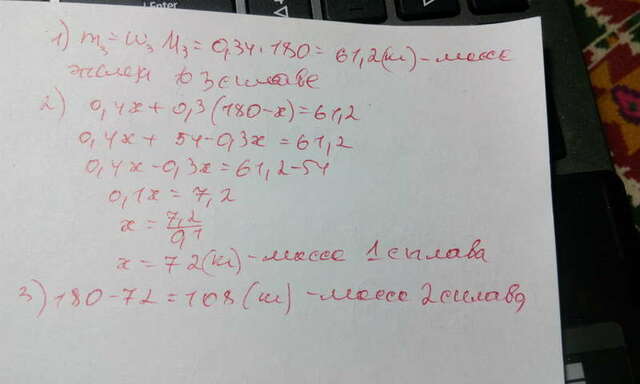 Enter
1) m₃ = ω₃ M₃ = 0,34 · 180 = 61,2 (кг) - масса
железа в 3 сплаве
2) 0,4x + 0,3(180-x) = 61,2
0,4x + 54-0,3x = 61,2
0,4x-0,3x = 61,2-54
0,1x = 7,2
x = 7,2/0,1
x = 72(кг) - масса 1 сплава
3) 180-72 = 108 (кг) - масса 2 сплава